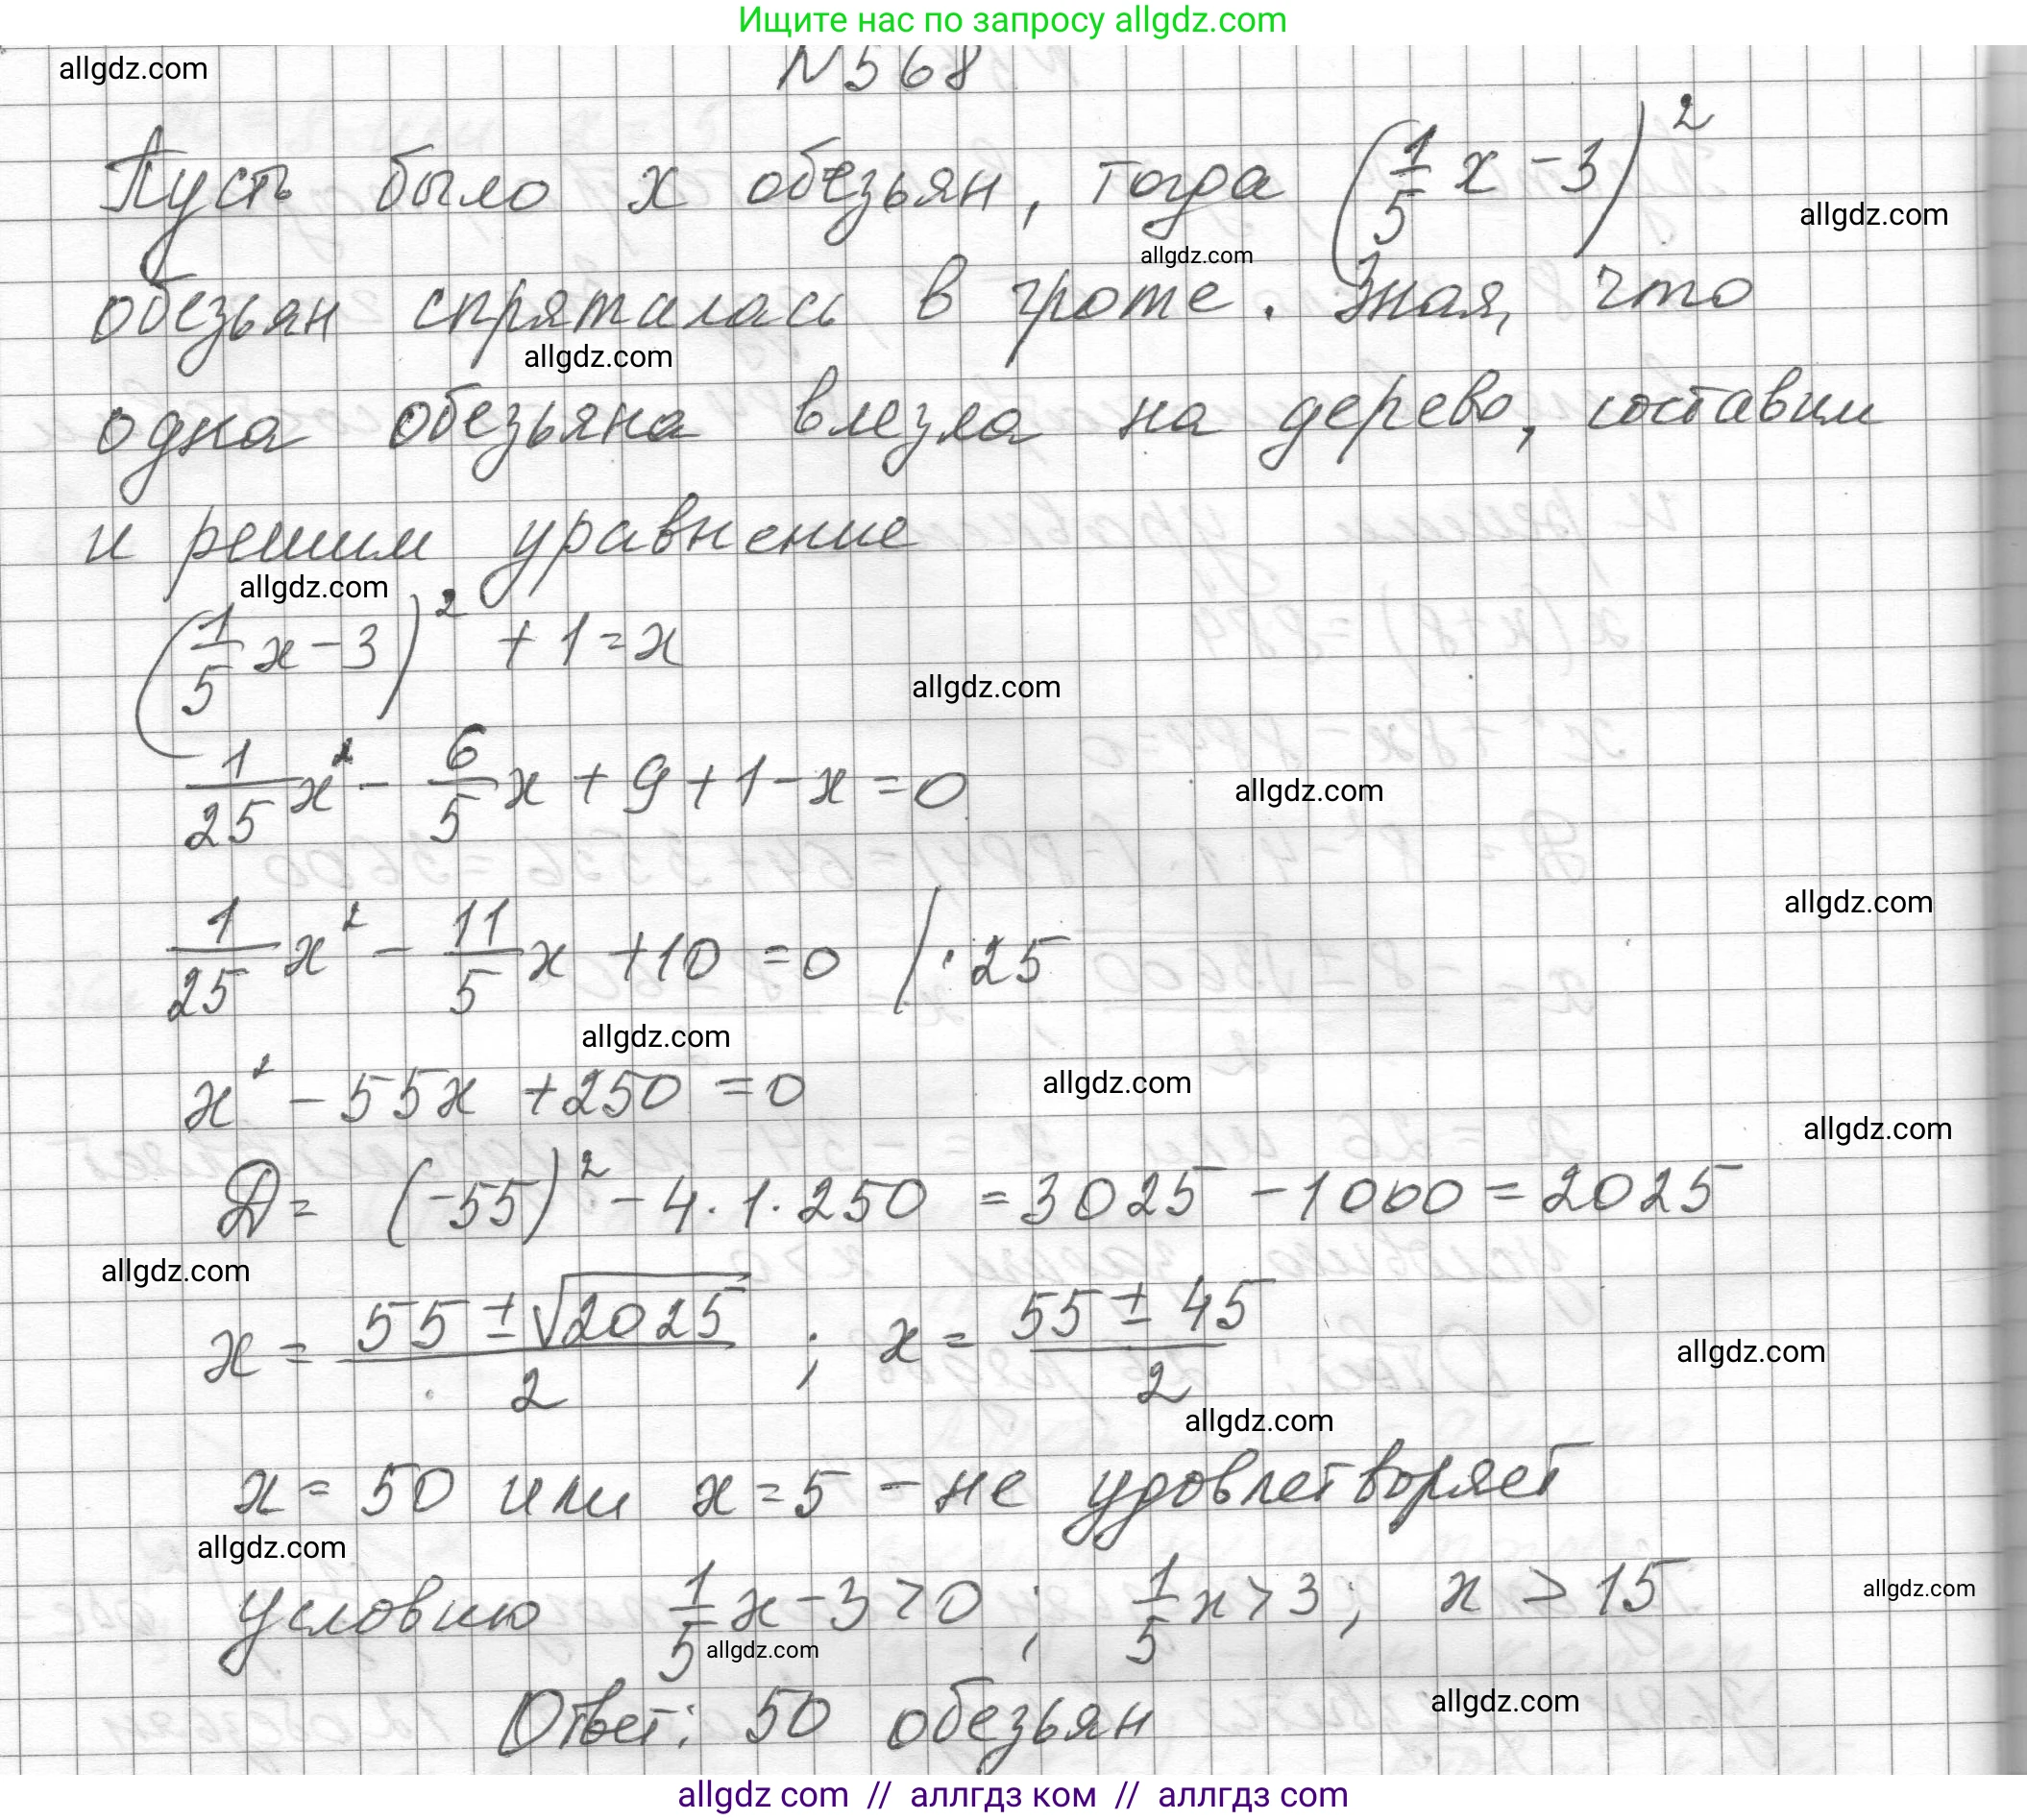 Ищите нас по запросу allgdz.com
allgdz.com
N568
Пусть было x обезьян, тогда (1/5 x - 3)²
allgdz.com
allgdz.com
обезьян спряталась в гроте. Зная, что
allgdz.com
одна обезьяна влезла на дерево, составим
и решим уравнение
allgdz.com
(1/5 x - 3)² + 1 = x
allgdz.com
1/25 x² - 6/5 x + 9 + 1 - x = 0
allgdz.com
allgdz.com
1/25 x² - 11/5 x + 10 = 0 / · 25
allgdz.com
x² - 55x + 250 = 0
allgdz.com
allgdz.com
D = (-55)² - 4 · 1 · 250 = 3025 - 1000 = 2025
allgdz.com
x = (55 ± √2025)/2 ; x = (55 ± 45)/2
allgdz.com
allgdz.com
x = 50 или x = 5 - не удовлетворяет
allgdz.com
условию 1/5 x - 3 > 0 ; 1/5 x > 3 ; x > 15
allgdz.com
allgdz.com
allgdz.com
Ответ: 50 обезьян
allgdz com // аллгдз ком // аллгдз com